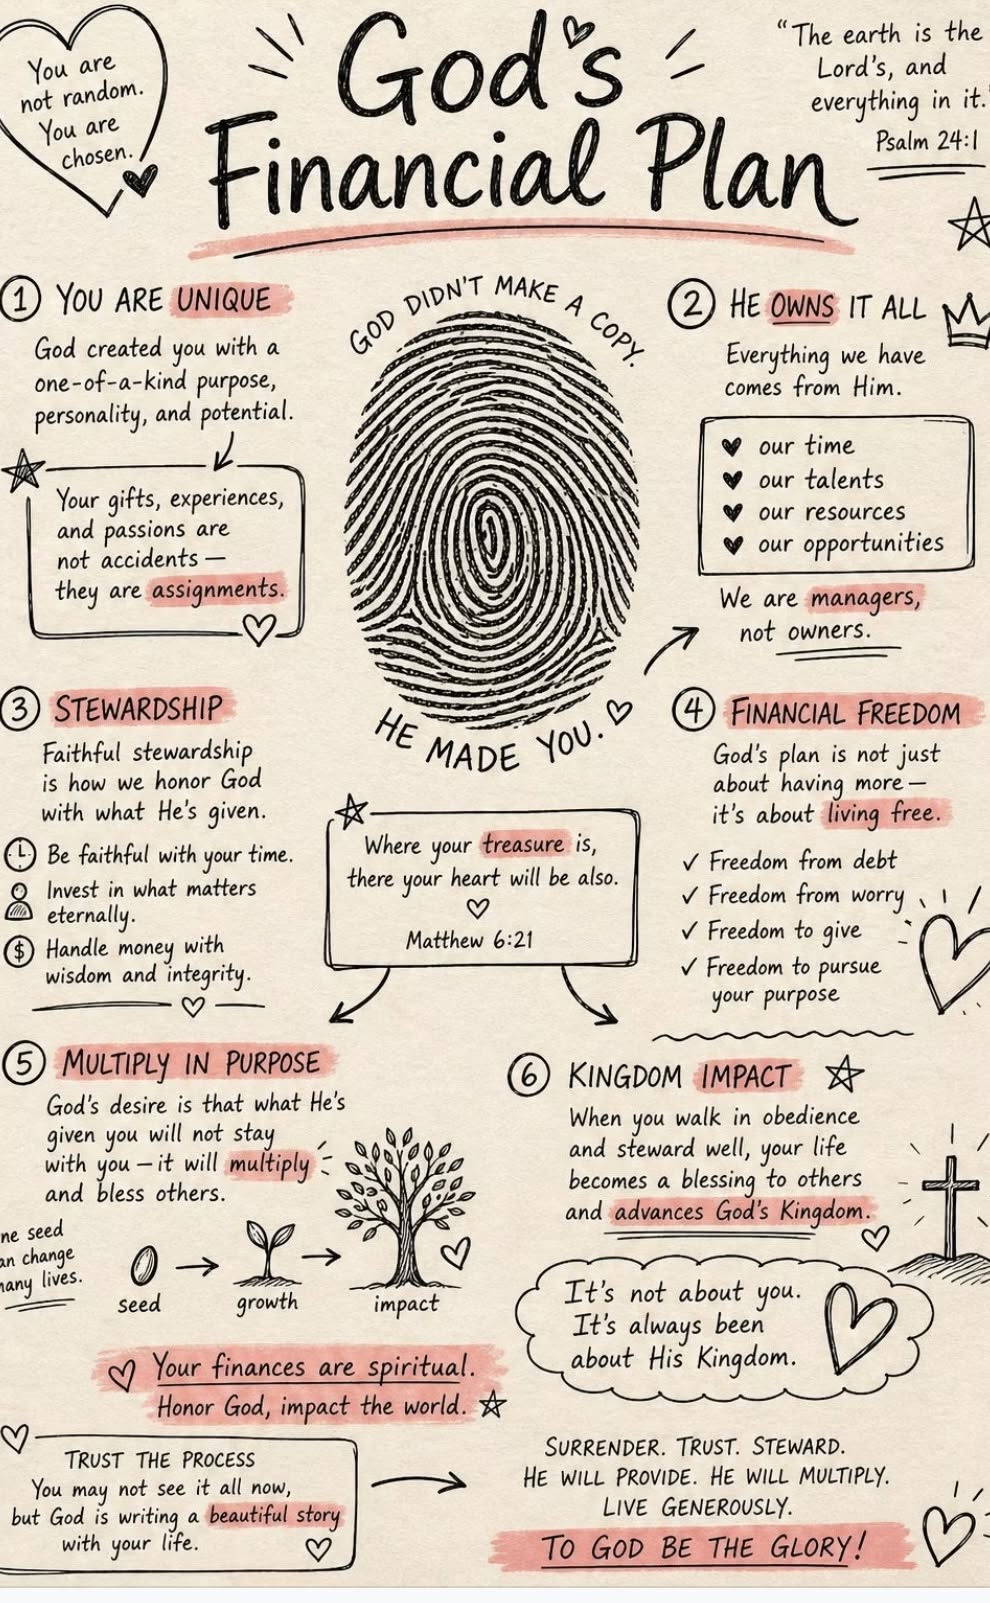 You are
not random.
You are
chosen.
God's
Financial Plan
"The earth is the
Lord's, and
everything in it."
Psalm 24:1
1 YOU ARE UNIQUE
God created you with a
one-of-a-kind purpose,
personality, and potential.
Your gifts, experiences,
and passions are
not accidents —
they are assignments.
GOD DIDN'T MAKE A COPY.
HE MADE YOU.
2 HE OWNS IT ALL
Everything we have
comes from Him.
our time
our talents
our resources
our opportunities
We are managers,
not owners.
3 STEWARDSHIP
Faithful stewardship
is how we honor God
with what He's given.
Be faithful with your time.
Invest in what matters
eternally.
$ Handle money with
wisdom and integrity.
Where your treasure is,
there your heart will be also.
Matthew 6:21
4 FINANCIAL FREEDOM
God's plan is not just
about having more —
it's about living free.
✓ Freedom from debt
✓ Freedom from worry
✓ Freedom to give
✓ Freedom to pursue
your purpose
5 MULTIPLY IN PURPOSE
God's desire is that what He's
given you will not stay
with you — it will multiply
and bless others.
ne seed
an change
many lives.
seed
growth
impact
6 KINGDOM IMPACT
When you walk in obedience
and steward well, your life
becomes a blessing to others
and advances God's Kingdom.
It's not about you.
It's always been
about His Kingdom.
Your finances are spiritual.
Honor God, impact the world.
TRUST THE PROCESS
You may not see it all now,
but God is writing a beautiful story
with your life.
SURRENDER. TRUST. STEWARD.
HE WILL PROVIDE. HE WILL MULTIPLY.
LIVE GENEROUSLY.
TO GOD BE THE GLORY!